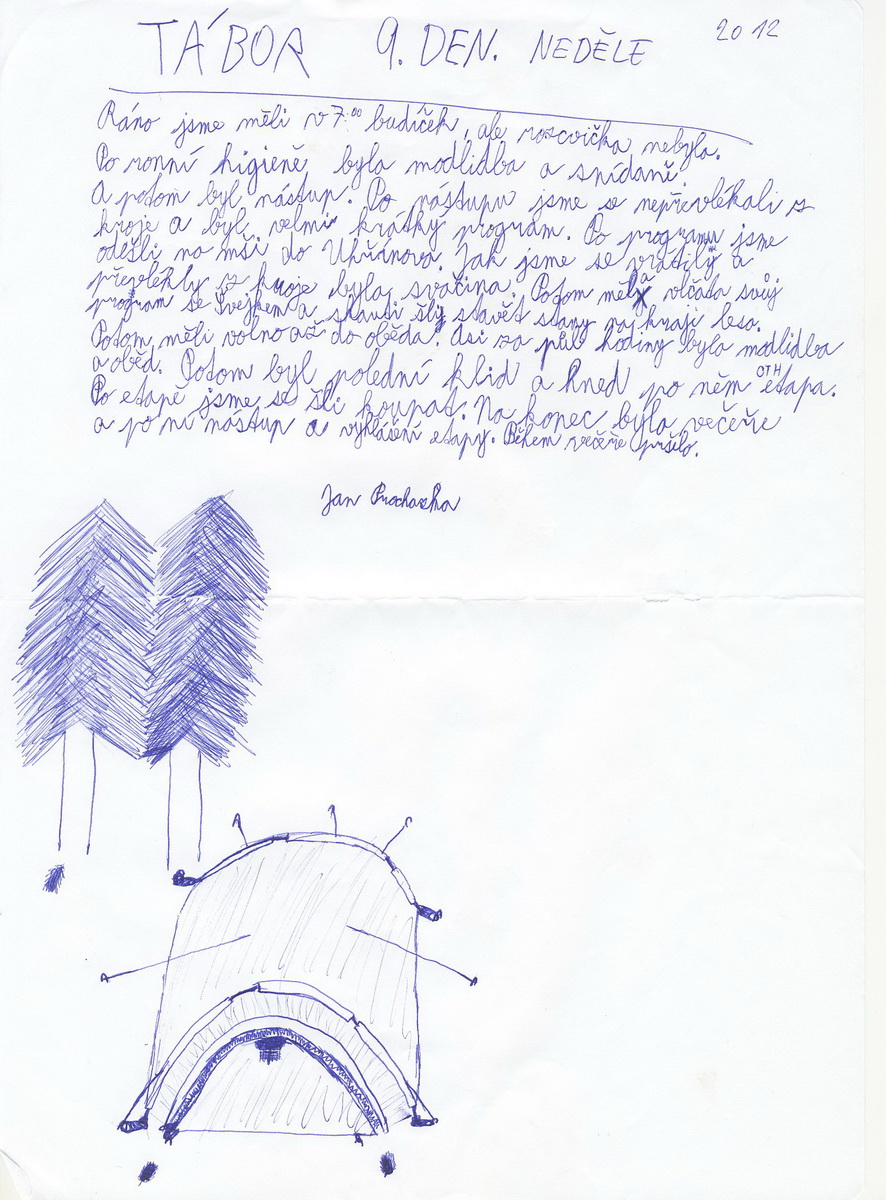 TÁBOR 9. DEN. NEDĚLE 2012
Ráno jsme měli v 7:00 budíček, ale rozcvička nebyla.
Po ronní higieně byla modlidba a snídaně.
A potom byl nástup. Po nástupu jsme se nepřevlékali z
kroje a byl velmi krátký program. Po programu jsme
odešli na mši do Uhřínova. Jak jsme se vrátily a
převlékly z kroje byla svačina. Potom měly vlčata svůj
program se Švejkem a skauti šly stavět stany na kraji lesa.
Potom měli volno až do oběda. Asi za půl hodiny byla modlidba
a oběd. Potom byl polední klid a hned po něm CTH etapa.
Po etapě jsme se šli koupat. Na konec byla večeře
a po ní nástup a vyhlášení etapy. Během večeře pršelo.
Jan Prochazka